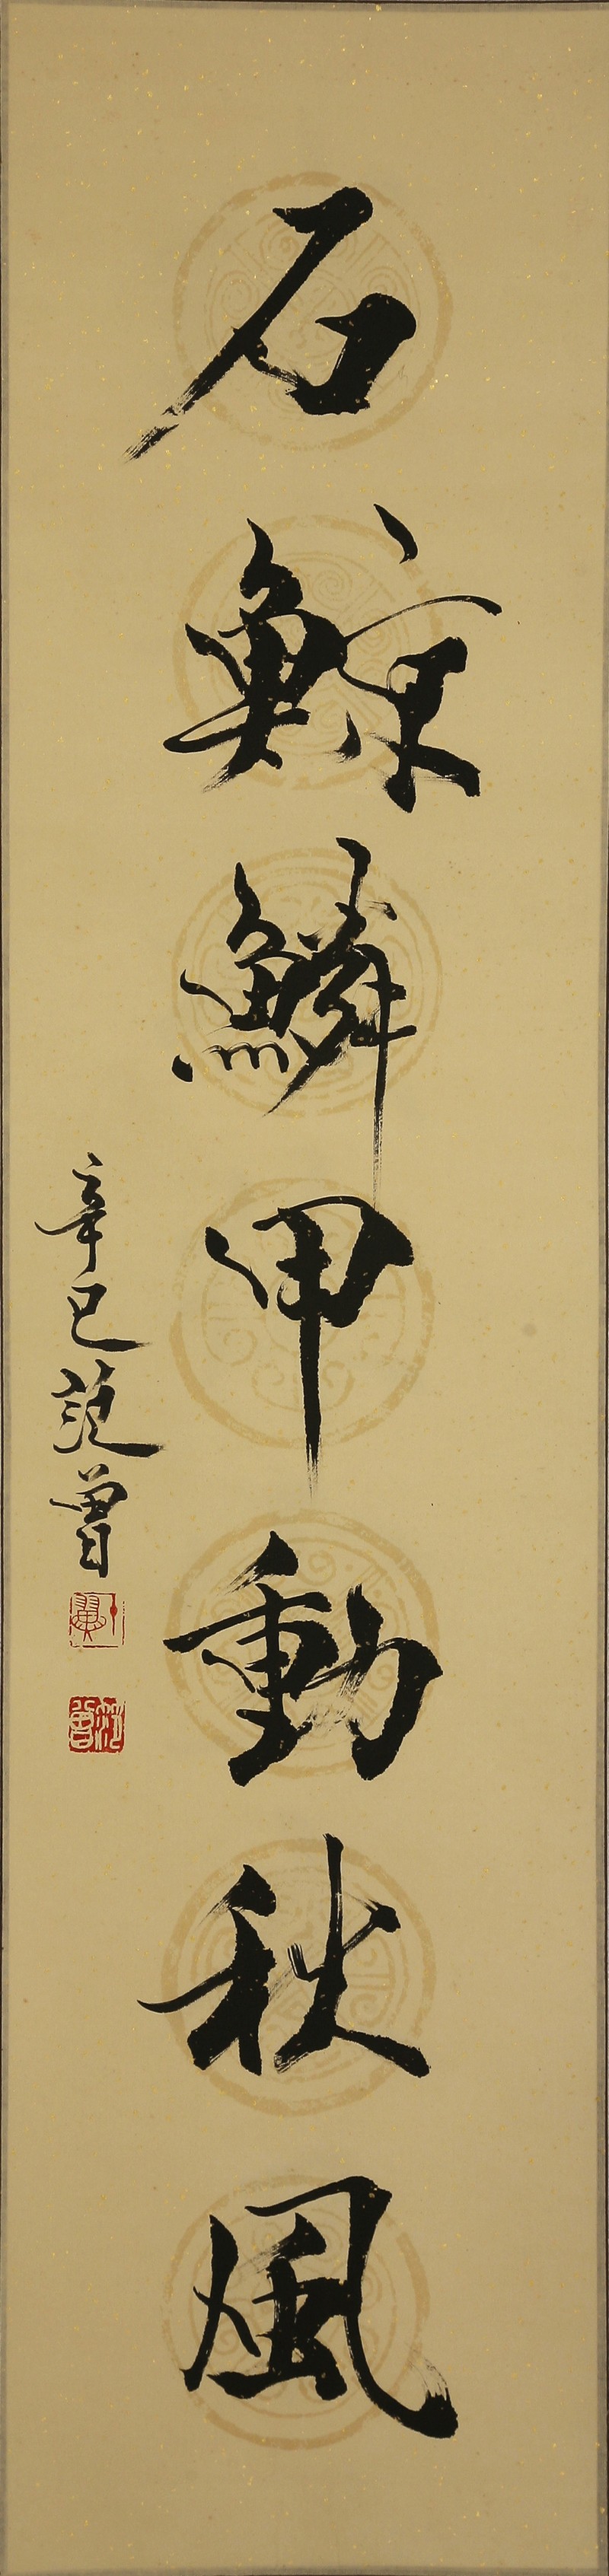 石鯨鱗甲動秋風
辛巳范曾
范曾